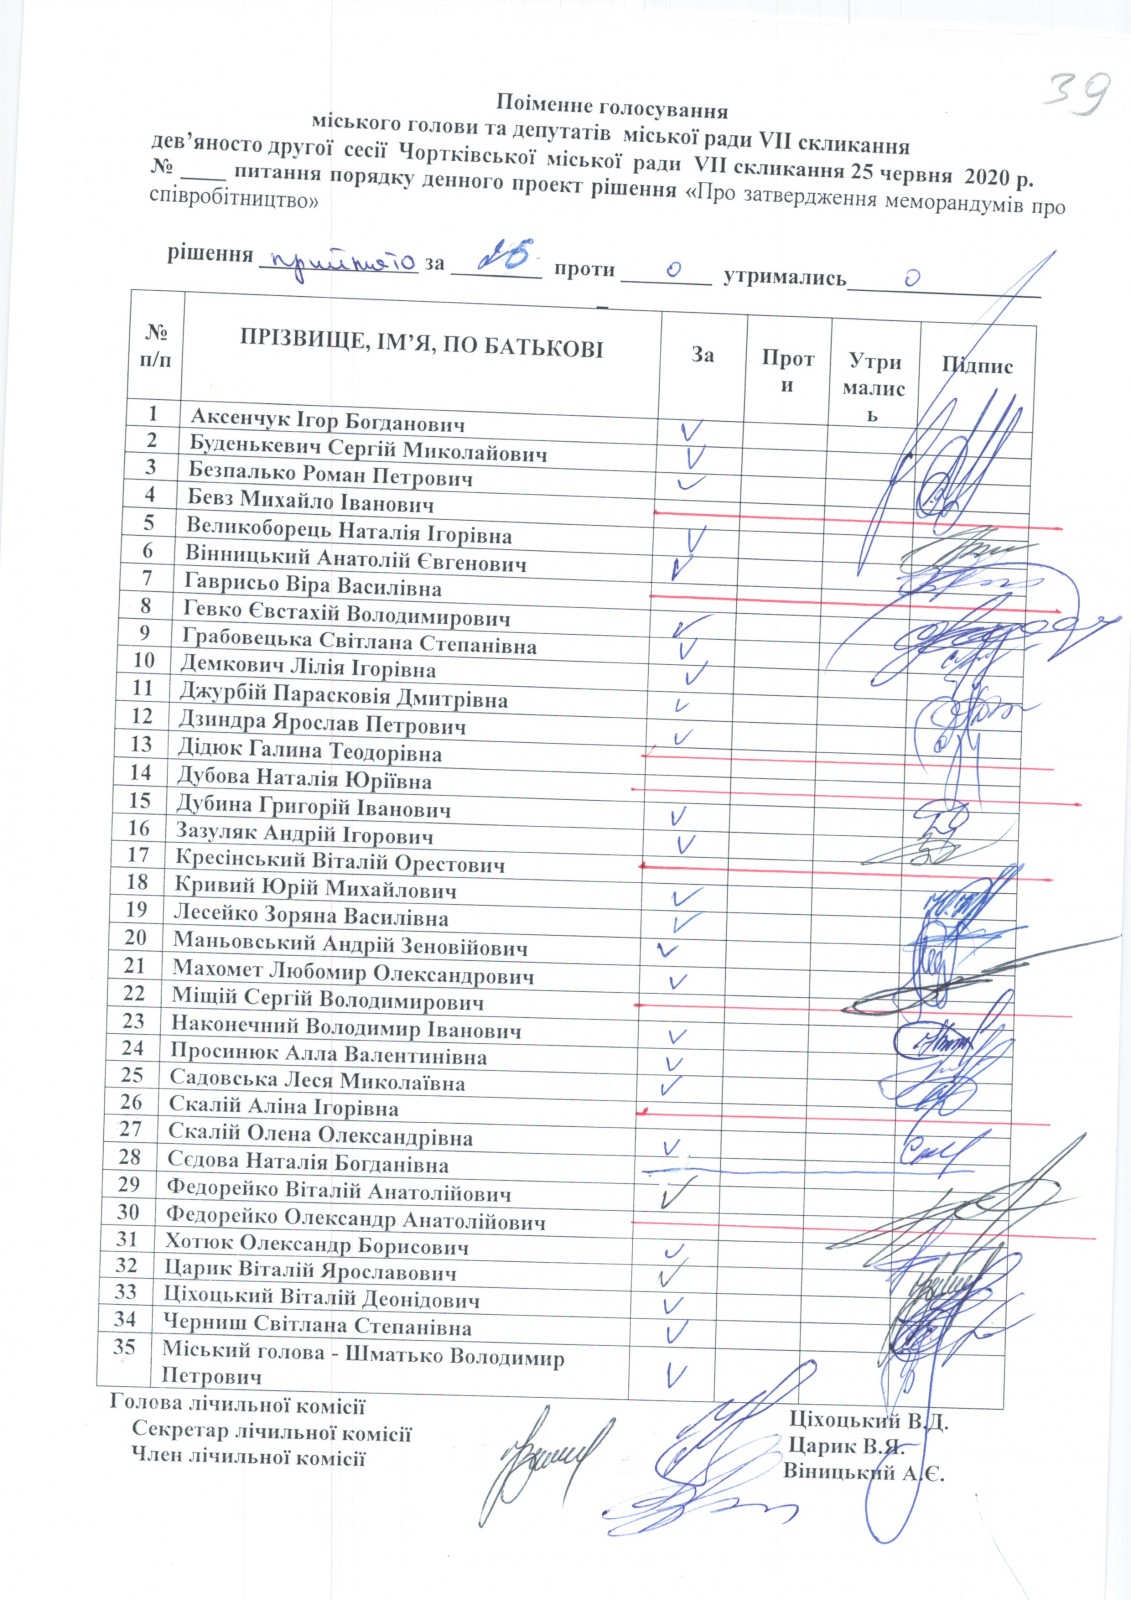 39
Поіменне голосування
міського голови та депутатів міської ради VII скликання
дев’яносто другої сесії Чортківської міської ради VII скликання 25 червня 2020 р.
№ ____ питання порядку денного проект рішення «Про затвердження меморандумів про
співробітництво»
рішення прийнято за 26 проти 0 утримались 0
№ п/п ПРІЗВИЩЕ, ІМ’Я, ПО БАТЬКОВІ За Прот и Утри малис ь Підпис
1 Аксенчук Ігор Богданович ✓
2 Буденькевич Сергій Миколайович ✓
3 Безпалько Роман Петрович ✓
4 Бевз Михайло Іванович
5 Великоборець Наталія Ігорівна ✓
6 Вінницький Анатолій Євгенович ✓
7 Гаврисьо Віра Василівна
8 Гевко Євстахій Володимирович ✓
9 Грабовецька Світлана Степанівна ✓
10 Демкович Лілія Ігорівна ✓
11 Джурбій Парасковія Дмитрівна ✓
12 Дзиндра Ярослав Петрович ✓
13 Дідюк Галина Теодорівна
14 Дубова Наталія Юріївна
15 Дубина Григорій Іванович ✓
16 Зазуляк Андрій Ігорович ✓
17 Кресінський Віталій Орестович
18 Кривий Юрій Михайлович ✓
19 Лесейко Зоряна Василівна ✓
20 Маньовський Андрій Зеновійович ✓
21 Махомет Любомир Олександрович ✓
22 Міщій Сергій Володимирович
23 Наконечний Володимир Іванович ✓
24 Просинюк Алла Валентинівна ✓
25 Садовська Леся Миколаївна ✓
26 Скалій Аліна Ігорівна
27 Скалій Олена Олександрівна ✓
28 Сєдова Наталія Богданівна
29 Федорейко Віталій Анатолійович ✓
30 Федорейко Олександр Анатолійович
31 Хотюк Олександр Борисович ✓
32 Царик Віталій Ярославович ✓
33 Ціхоцький Віталій Деонідович ✓
34 Черниш Світлана Степанівна ✓
35 Міський голова - Шматько Володимир
Петрович ✓
Голова лічильної комісії Ціхоцький В.Д.
Секретар лічильної комісії Царик В.Я.
Член лічильної комісії Віницький А.Є.